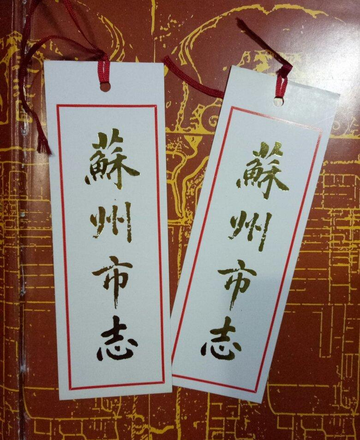 蘇州市志
蘇州市志